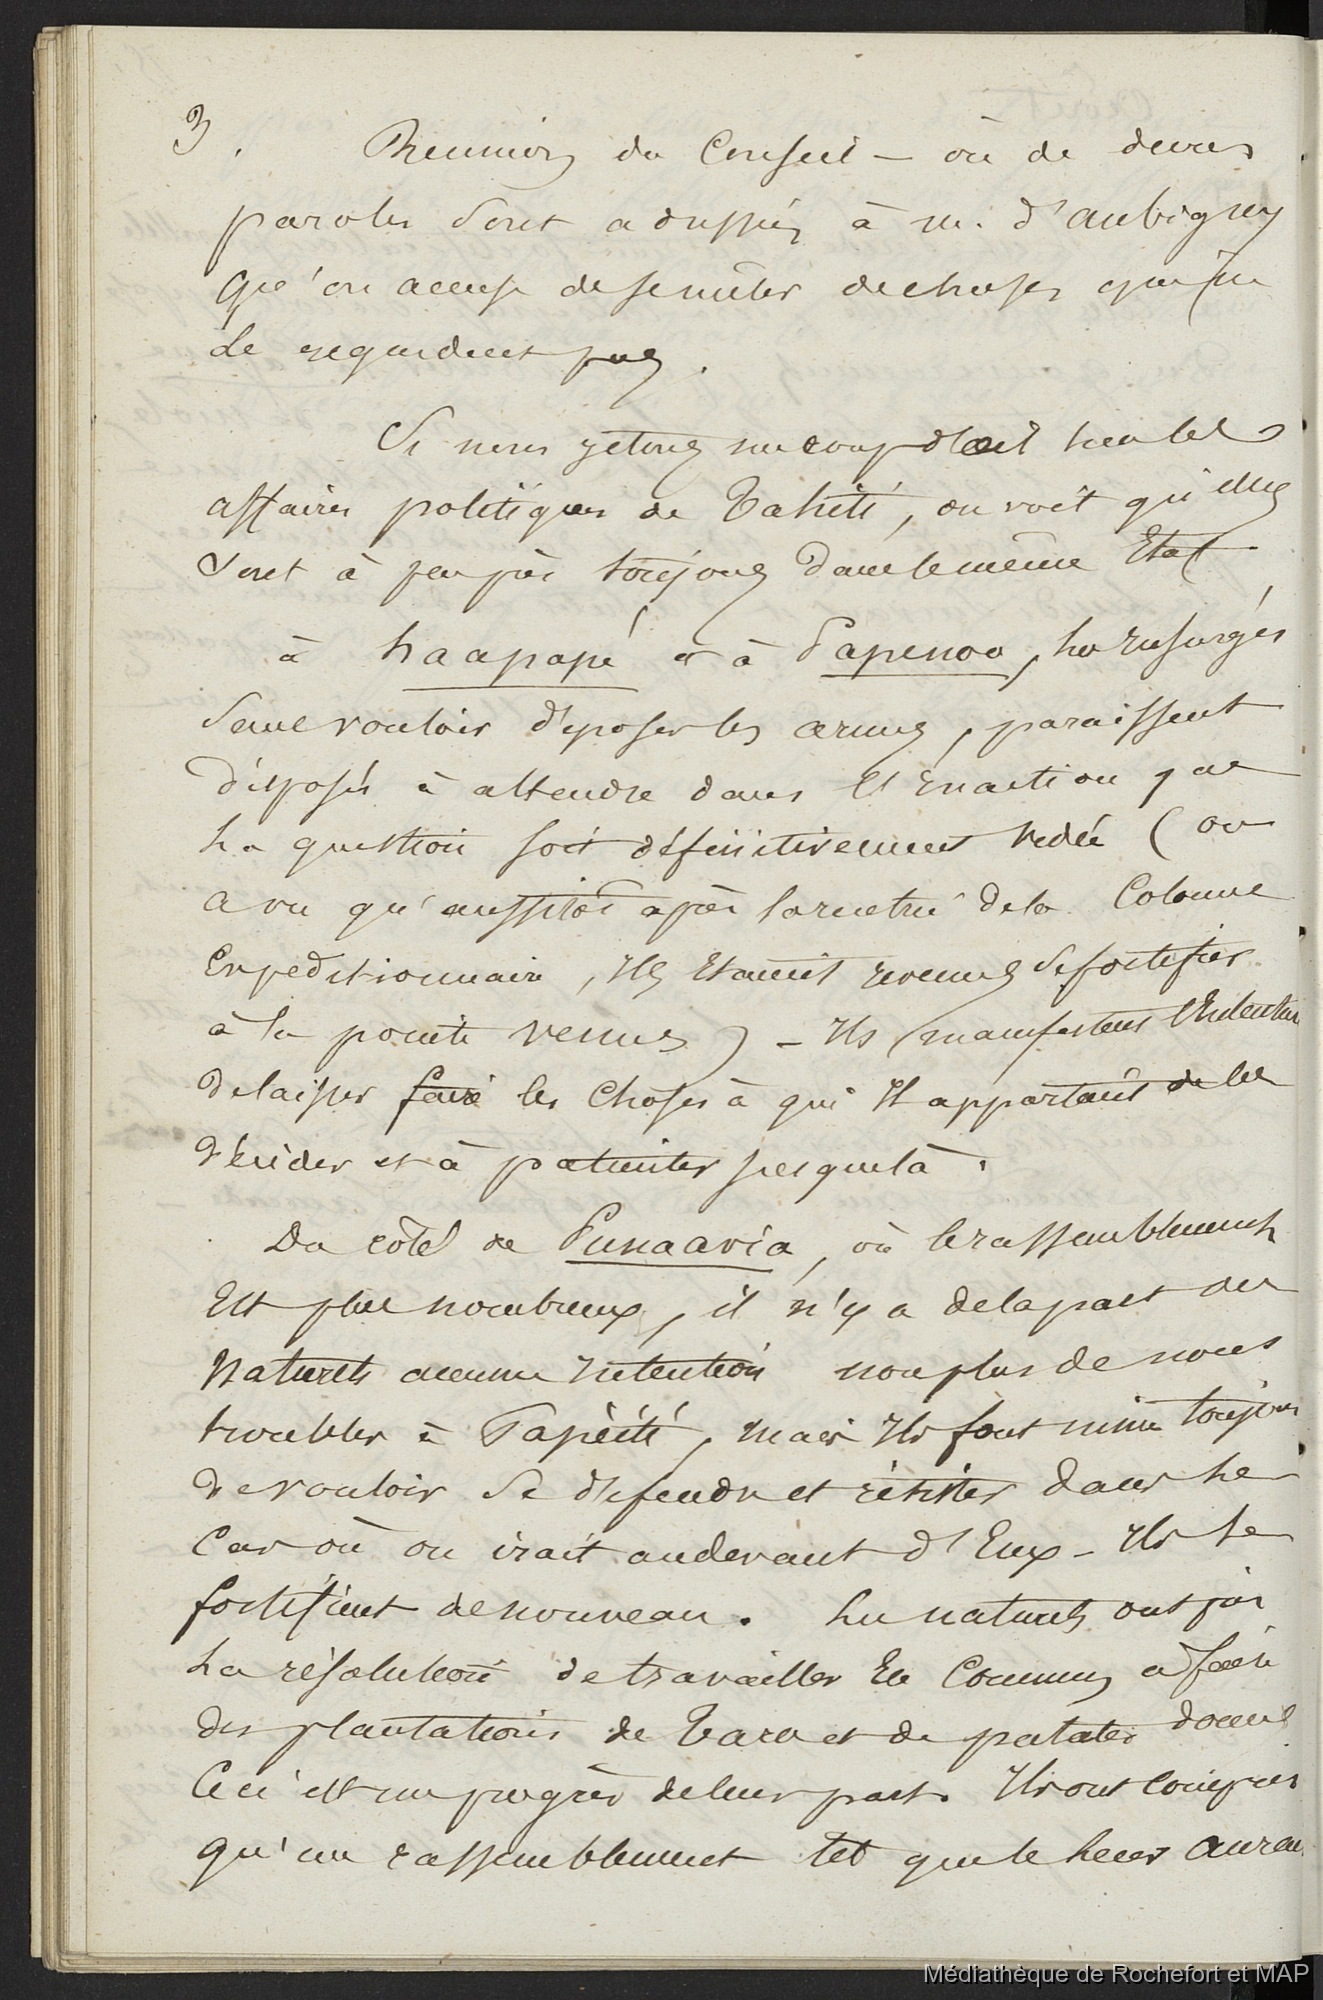 3. Reunion du Conseil – où de dures
paroles sont adressées à m. d'aubigny
qu'on accuse de se mêler de choses qui ne
le regardent pas.
Si nous jetons un coup d'œil sur les
affaires politiques de Tahiti, on voit qu'elles
sont à peu près toujours dans le même Etat.
à haapapé et à Papenoo, les insurgés
sans vouloir déposer les armes, paraissent
disposés à attendre dans l'inaction que
la question soit définitivement vidée (on
a vu qu'aussitôt après la rentrée de la Colonne
Expeditionnaire, Ils Etaient revenus se fortifier
à la pointe venus) – Ils manifestent l'Intention
de laisser faire les choses à qui Il appartient de les
décider et à patienter jusque là.
Du côté de Punaavia, où le rassemblement
Est plus nombreux, il n'y a de la part des
Naturels aucune Intention non plus de nous
troubler à Papéïti, mais Ils font mine toujours
de vouloir se défendre et résister dans le
Cas où on irait au devant d'Eux – Ils se
fortifient de nouveau. Les naturels ont pris
la résolution de travailler En Commun à faire
des plantations de Taro et de patates douces
Ceci est un progrès de leur part. Ils ont compris
qu'un rassemblement tel que le leur aurait
Médiathèque de Rochefort et MAP